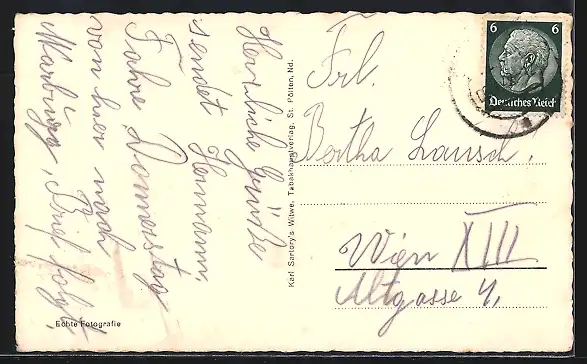 Herzliche Grüße
sendet Hermann,
Fahre Donnerstag
von hier nach
Marburg, Brief folgt,
Echte Fotografie
Karl Sartory's Witwe, Tabakhauptverlag, St. Pölten, Nd.
6 6
Deutsches Reich
Frl.
Bertha Lausch.
Wien XIII
Altgasse 4,